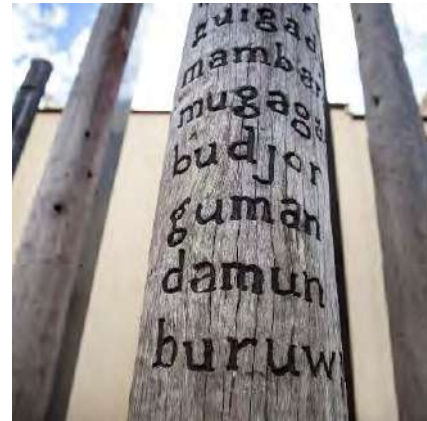 guigad
mambar
mugaga
budjor
guman
damun
buruw